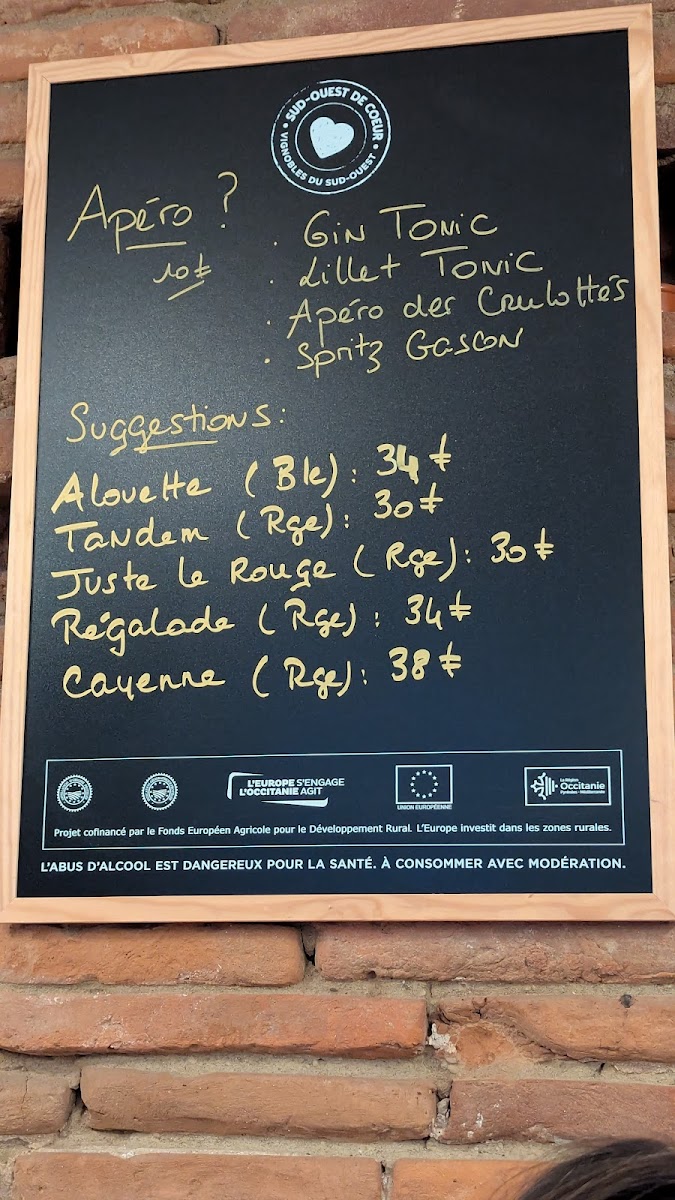 SUD-OUEST DE COEUR
VIGNOBLES DU SUD-OUEST
Apéro ?
10 €
. Gin Tonic
. Lillet Tonic
. Apéro des Culottés
. Spritz Gascon
Suggestions:
Alouette (Ble): 34 €
Tandem (Rge): 30 €
Juste le Rouge (Rge): 30 €
Régalade (Rge): 34 €
Cayenne (Rge): 38 €
L'EUROPE S'ENGAGE
L'OCCITANIE AGIT
UNION EUROPÉENNE
La Région
Occitanie
Pyrénées - Méditerranée
Projet cofinancé par le Fonds Européen Agricole pour le Développement Rural. L'Europe investit dans les zones rurales.
L'ABUS D'ALCOOL EST DANGEREUX POUR LA SANTÉ. À CONSOMMER AVEC MODÉRATION.